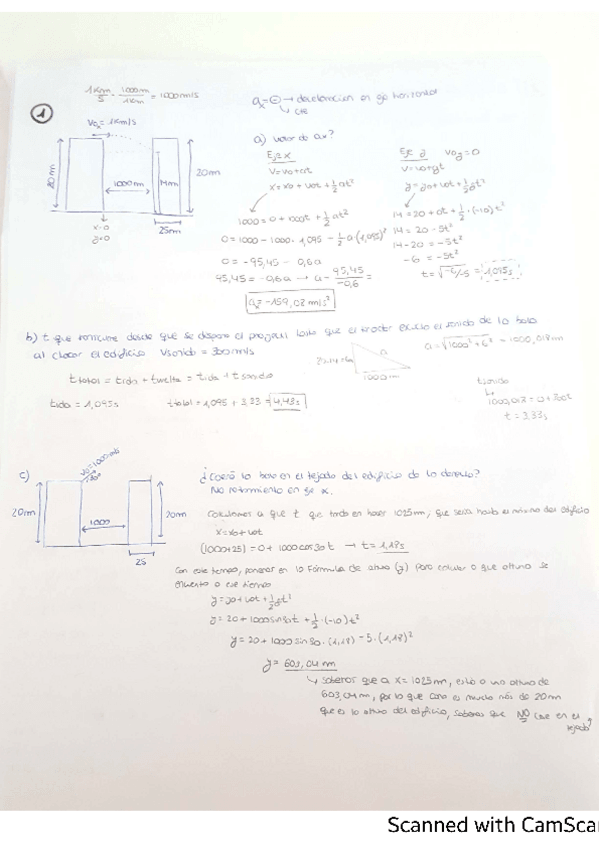 1Km/s · 1000m/1Km = 1000m/s
ax = ⊖ → deceleracion en eje horizontal
↳ cte
1
V0x = 1Km/s
20m
1000m
14m
20m
25m
x=0
y=0
a) valor de ax?
Eje x
V=V0+at
x = x0 + v0t + 1/2 at²
1000 = 0 + 1000t + 1/2 at²
0 = 1000 - 1000 · 1,095 - 1/2 a (1,095)²
0 = -95,45 - 0,6a
45,45 = -0,6a → a = 95,45/-0,6 =
ax = -159,02 m/s²
Eje y V0y = 0
V = V0 + gt
y = y0 + v0t + 1/2 gt²
14 = 20 + 0t + 1/2 · (-10)t²
14 = 20 - 5t²
14 - 20 = -5t²
-6 = -5t²
t = √-6/-5 = 1,095s
b) t que transcurre desde que se dispara el proyectil hasta que el tirador escucha el sonido de la bala
al chocar el edificio Vsonido = 300m/s
t total = t ida + t vuelta = t ida + t sonido
t ida = 1,095s
t total = 1,095 + 3,33 = 4,43s
20-14=6m
a
1000m
a = √1000² + 6² = 1000,018m
t sonido
1000,018 = 0 + 300t
t = 3,33s
c)
V0 = 1000m/s
20m
1000
20m
25
¿Caerá la bala en el tejado del edificio de la derecha?
No rozamiento en eje x.
Calculamos a que t que tarda en hacer 1025m, que sería hasta el máximo del edificio
x = x0 + v0t
(1000+25) = 0 + 1000cos30t → t = 1,18s
Con este tiempo, ponemos en la fórmula de altura (y) para calcular a que altura se
encuentra a ese tiempo
y = y0 + v0t + 1/2 gt²
y = 20 + 1000sin30t + 1/2 · (-10)t²
y = 20 + 1000 sin30 · (1,18) - 5 · (1,18)²
y = 603,04m
↳ Sabemos que a x = 1025m, está a una altura de
603,04m, por lo que como es mucho más de 20m
que es la altura del edificio, sabemos que NO cae en el
tejado
Scanned with CamSca